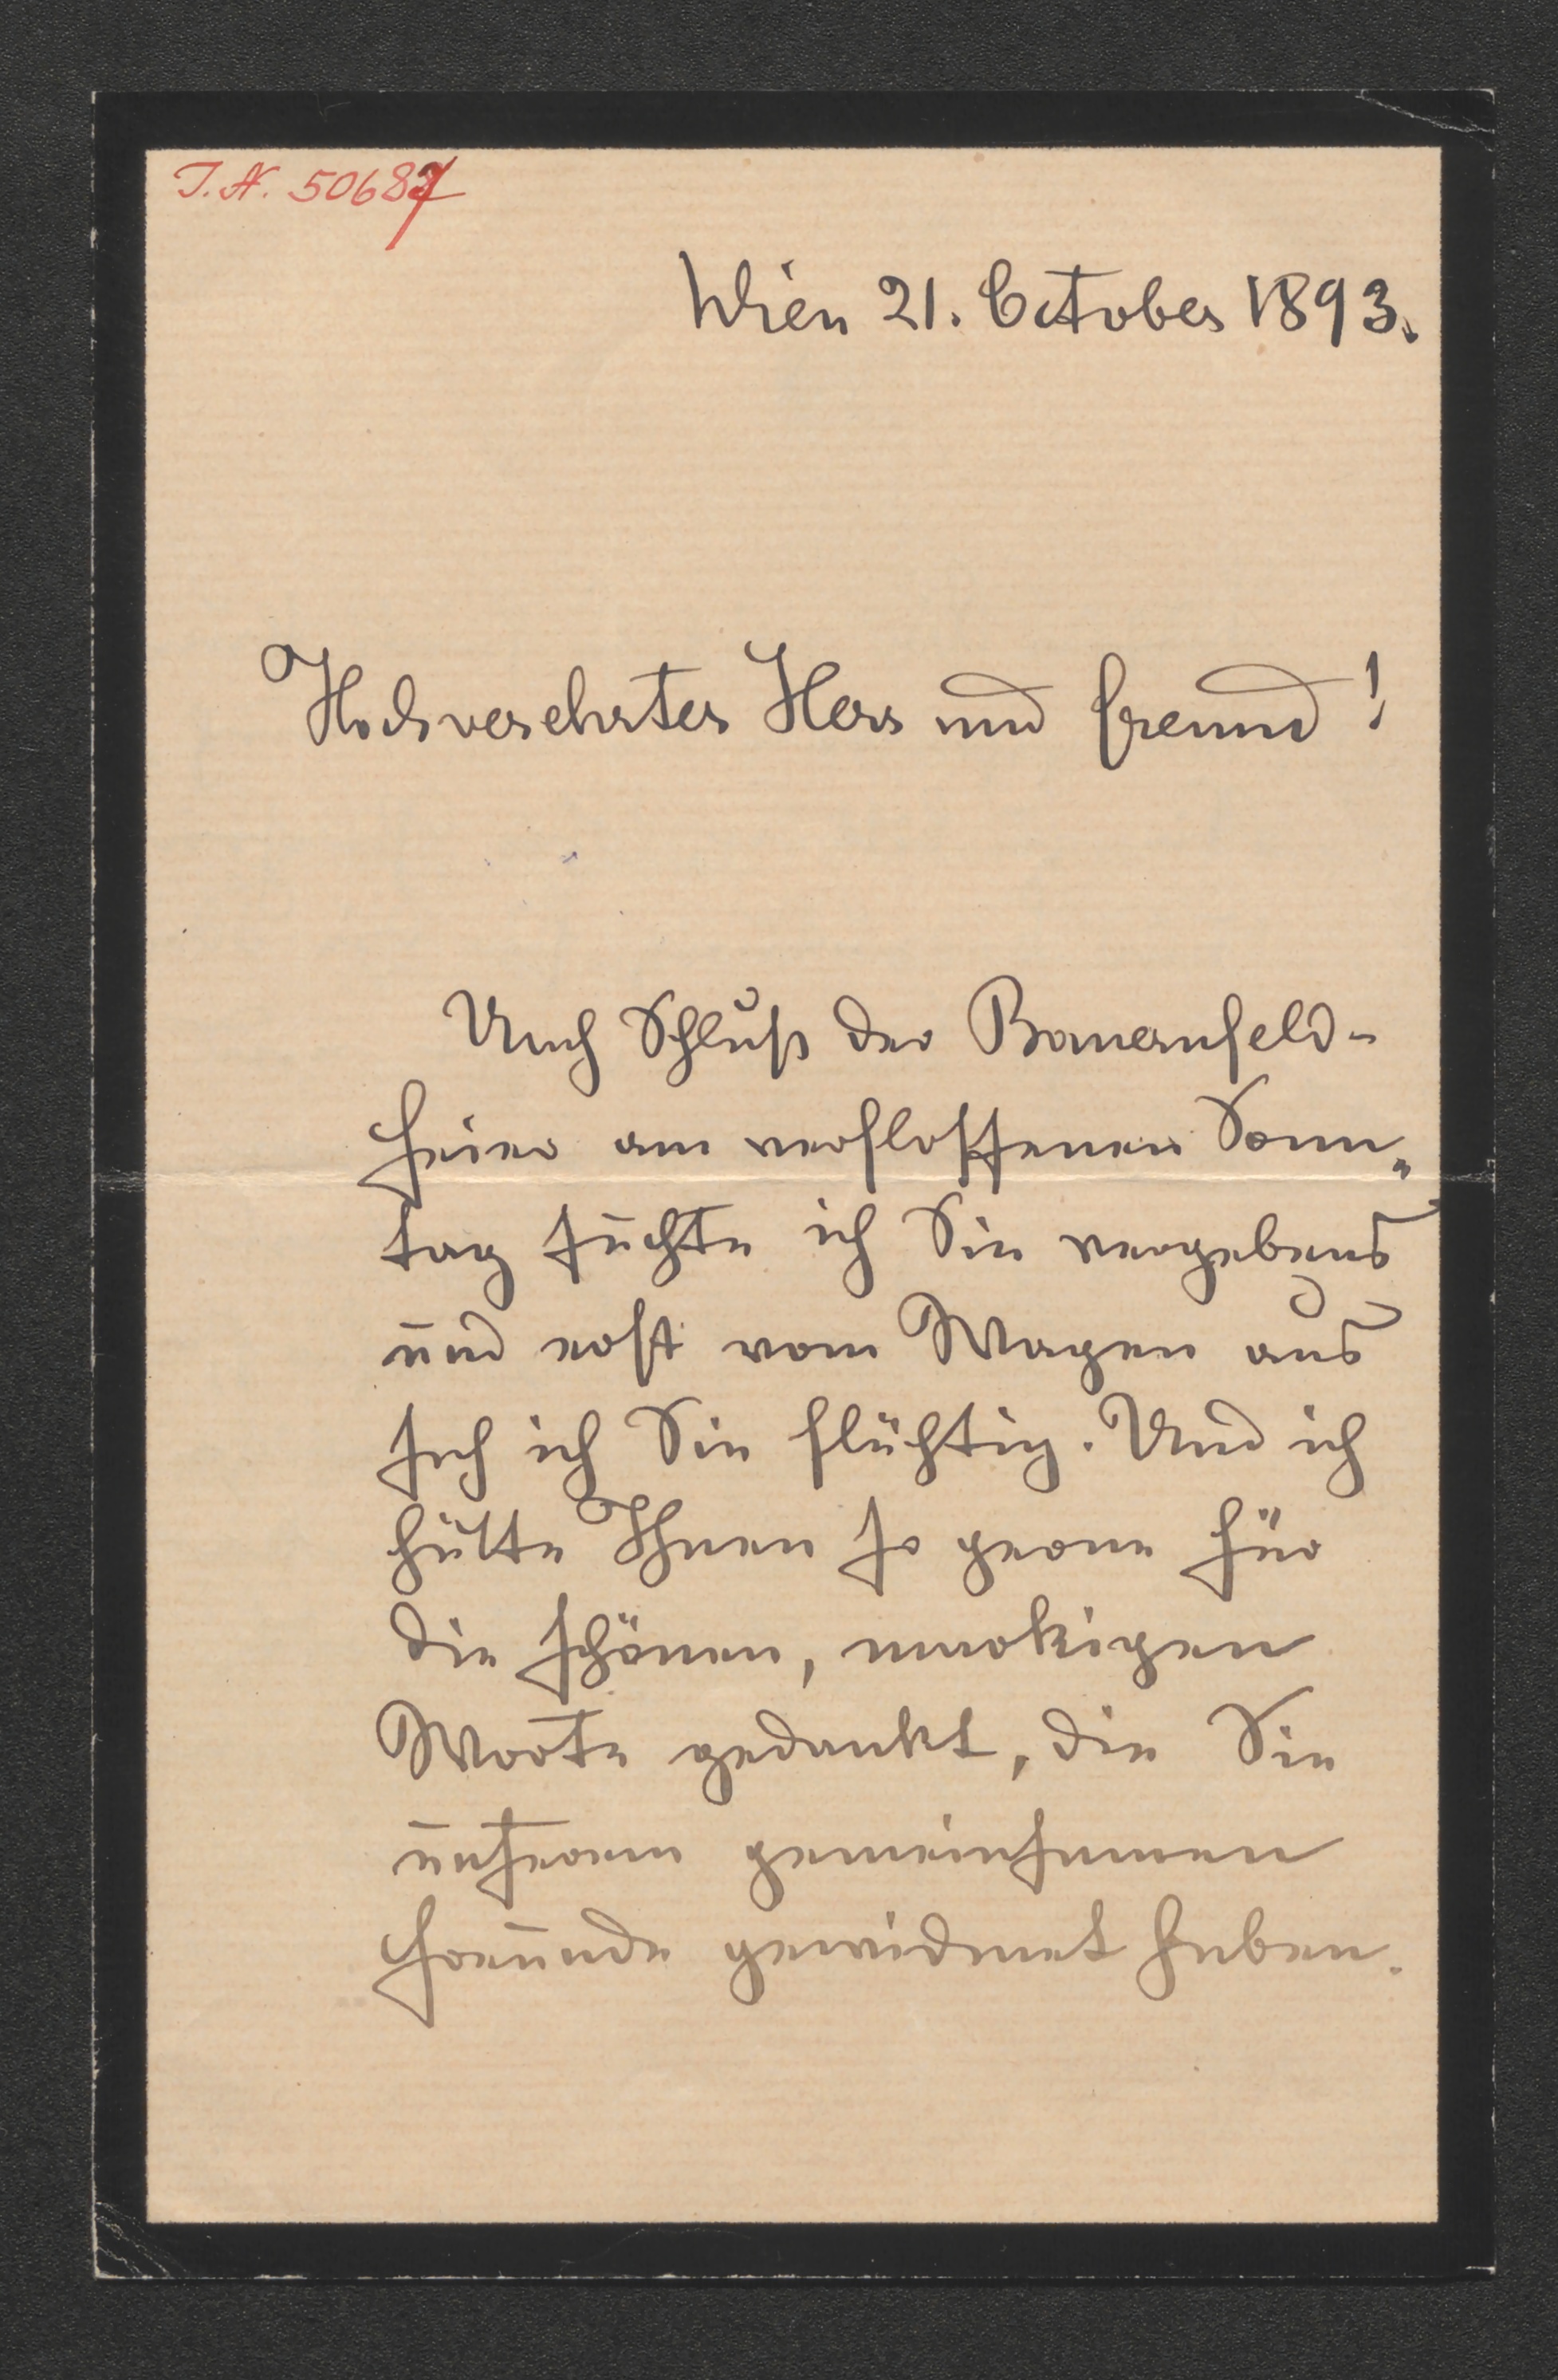 I. N. 50687
Wien 21. October 1893.
Hochverehrter Herr und Freund!
Nach Schluß der Bauernfeld-
feier am verflossenen Sonn-
tag suchte ich Sie vergebens
und erst vom Wagen aus
sah ich Sie flüchtig. Und ich
hätte Ihnen so gerne für
die schönen, markigen
Worte gedankt, die Sie
unserem gemeinsamen
Freunde gewidmet haben.